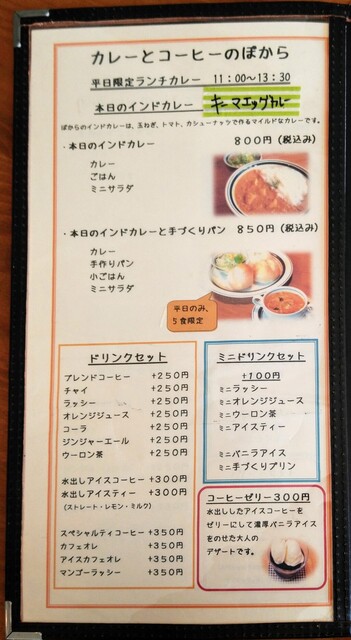 カレーとコーヒーのぽから
平日限定ランチカレー 11:00～13:30
本日のインドカレー キーマエッグカレー
ぽからのインドカレーは、玉ねぎ、トマト、カシューナッツで作るマイルドなカレーです。
・本日のインドカレー 800円(税込み)
カレー
ごはん
ミニサラダ
・本日のインドカレーと手づくりパン 850円(税込み)
カレー
手作りパン
小ごはん
ミニサラダ
平日のみ、
5食限定
ドリンクセット
ブレンドコーヒー +250円
チャイ +250円
ラッシー +250円
オレンジジュース +250円
コーラ +250円
ジンジャーエール +250円
ウーロン茶 +250円
水出しアイスコーヒー +300円
水出しアイスティー +300円
(ストレート・レモン・ミルク)
スペシャルティコーヒー +350円
カフェオレ +350円
アイスカフェオレ +350円
マンゴーラッシー +350円
ミニドリンクセット
+100円
ミニラッシー
ミニオレンジジュース
ミニウーロン茶
ミニアイスティー
ミニバニラアイス
ミニ手づくりプリン
コーヒーゼリー300円
水出ししたアイスコーヒーを
ゼリーにして濃厚バニラアイス
をのせた大人の
デザートです。